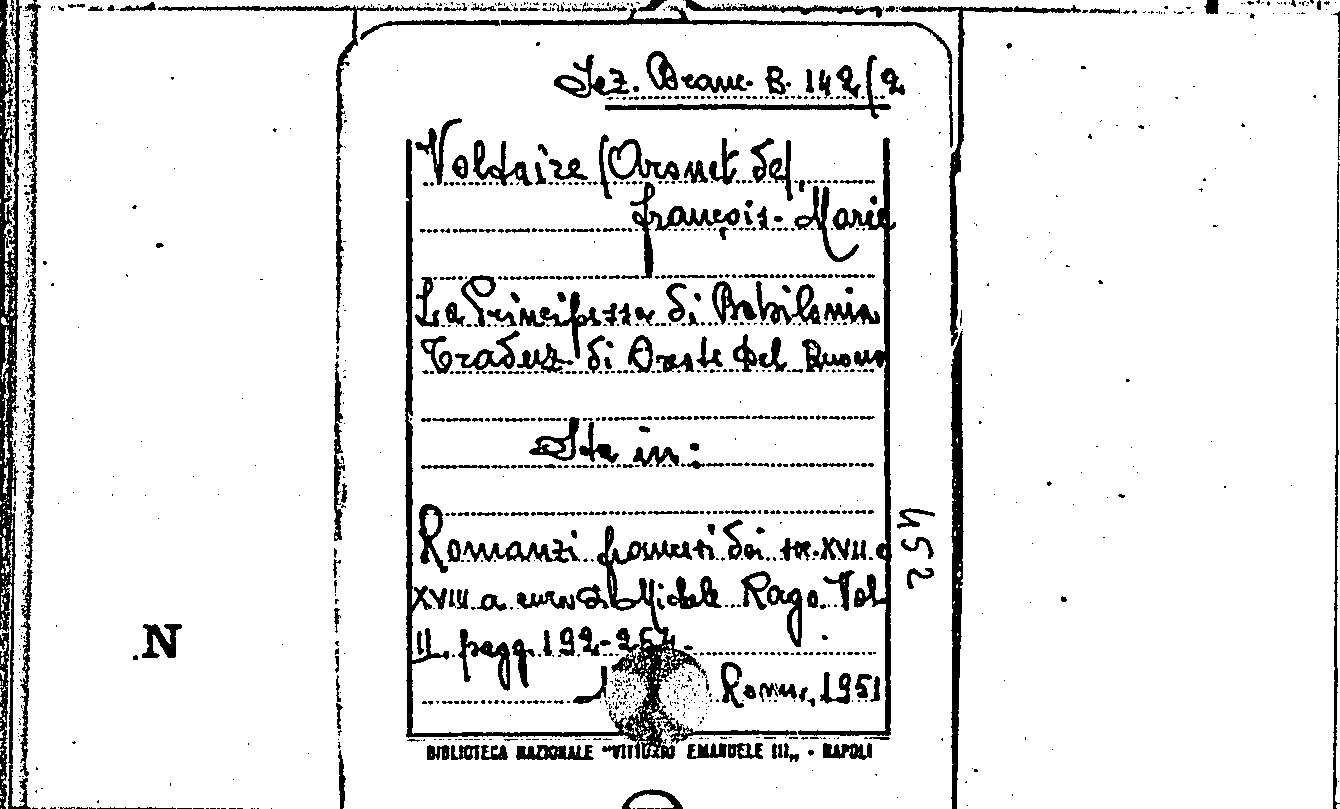 Sez. Branc. B. 142/2
Voltaire (Arouet de)
François-Marie
La Principessa di Babilonia
Traduz. di Oreste Del Buono
Sta in:
Romanzi francesi dei sec. XVII e
XVIII a cura di Michele Rago. Vol.
II. pagg. 192-254.
Roma, 1951
452
N
BIBLIOTECA NAZIONALE "VITTORIO EMANUELE III„ - NAPOLI